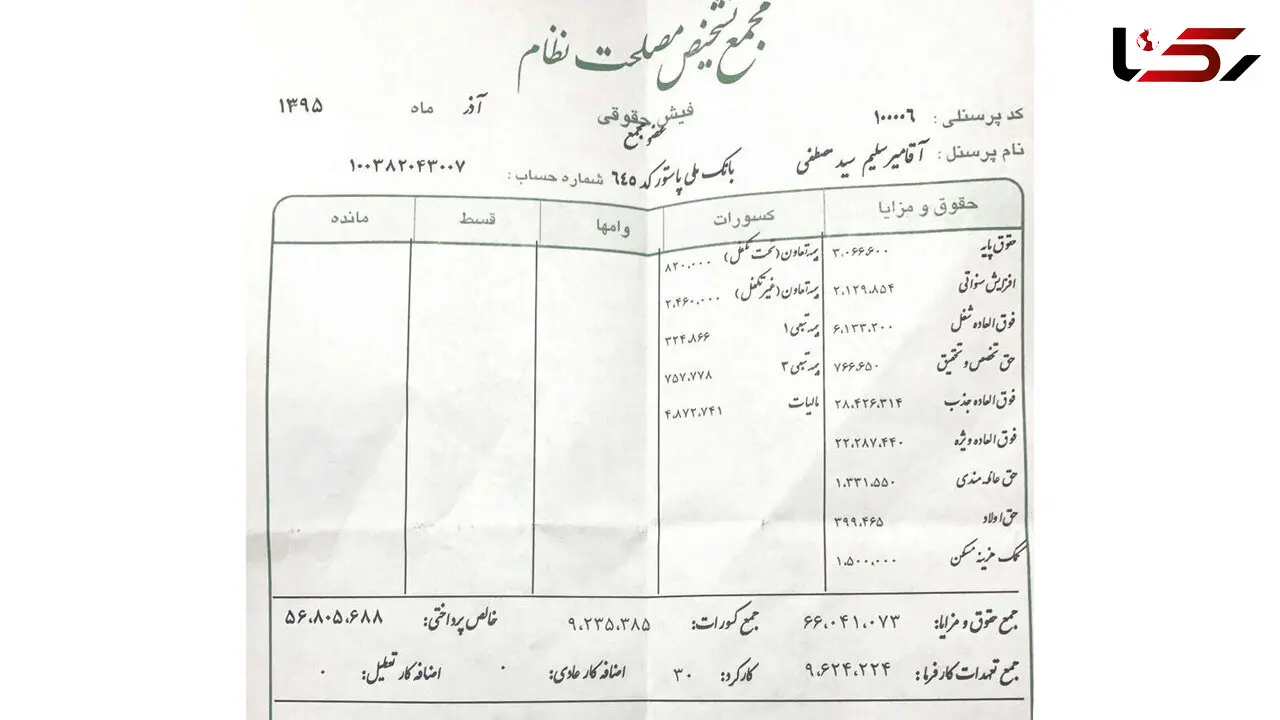 رکنا
مجمع تشخیص مصلحت نظام
کد پرسنلی: ۱۰۰۰۶ فیش حقوقی آذر ماه ۱۳۹۵
عضو مجمع
نام پرسنل: آقامیرسلیم سید مصطفی بانک ملی پاستور کد ۶۴۵ شماره حساب: ۱۰۰۳۸۲۰۴۳۰۰۷
حقوق و مزایا کسورات وامها قسط مانده
حقوق پایه ۳،۰۶۶،۶۰۰ بیمه تعاون (تحت تکفل) ۸۲۰،۰۰۰
افزایش سنواتی ۲،۱۲۹،۸۵۴ بیمه تعاون (غیر تکفل) ۲،۴۶۰،۰۰۰
فوق العاده شغل ۶،۱۳۳،۲۰۰ بیمه تبعی ۱ ۳۲۴،۸۶۶
حق تخصص و تحقیق ۷۶۶،۶۵۰ بیمه تبعی ۳ ۷۵۷،۷۷۸
فوق العاده جذب ۲۸،۴۲۶،۳۱۴ مالیات ۴،۸۷۲،۷۴۱
فوق العاده ویژه ۲۲،۲۸۷،۴۴۰
حق عائله مندی ۱،۳۳۱،۵۵۰
حق اولاد ۳۹۹،۴۶۵
کمک هزینه مسکن ۱،۵۰۰،۰۰۰
جمع حقوق و مزایا: ۶۶،۰۴۱،۰۷۳ جمع کسورات: ۹،۲۳۵،۳۸۵ خالص پرداختی: ۵۶،۸۰۵،۶۸۸
جمع تعهدات کارفرما: ۹،۶۲۴،۲۲۴ کارکرد: ۳۰ اضافه کار عادی: ۰ اضافه کار تعطیل: ۰